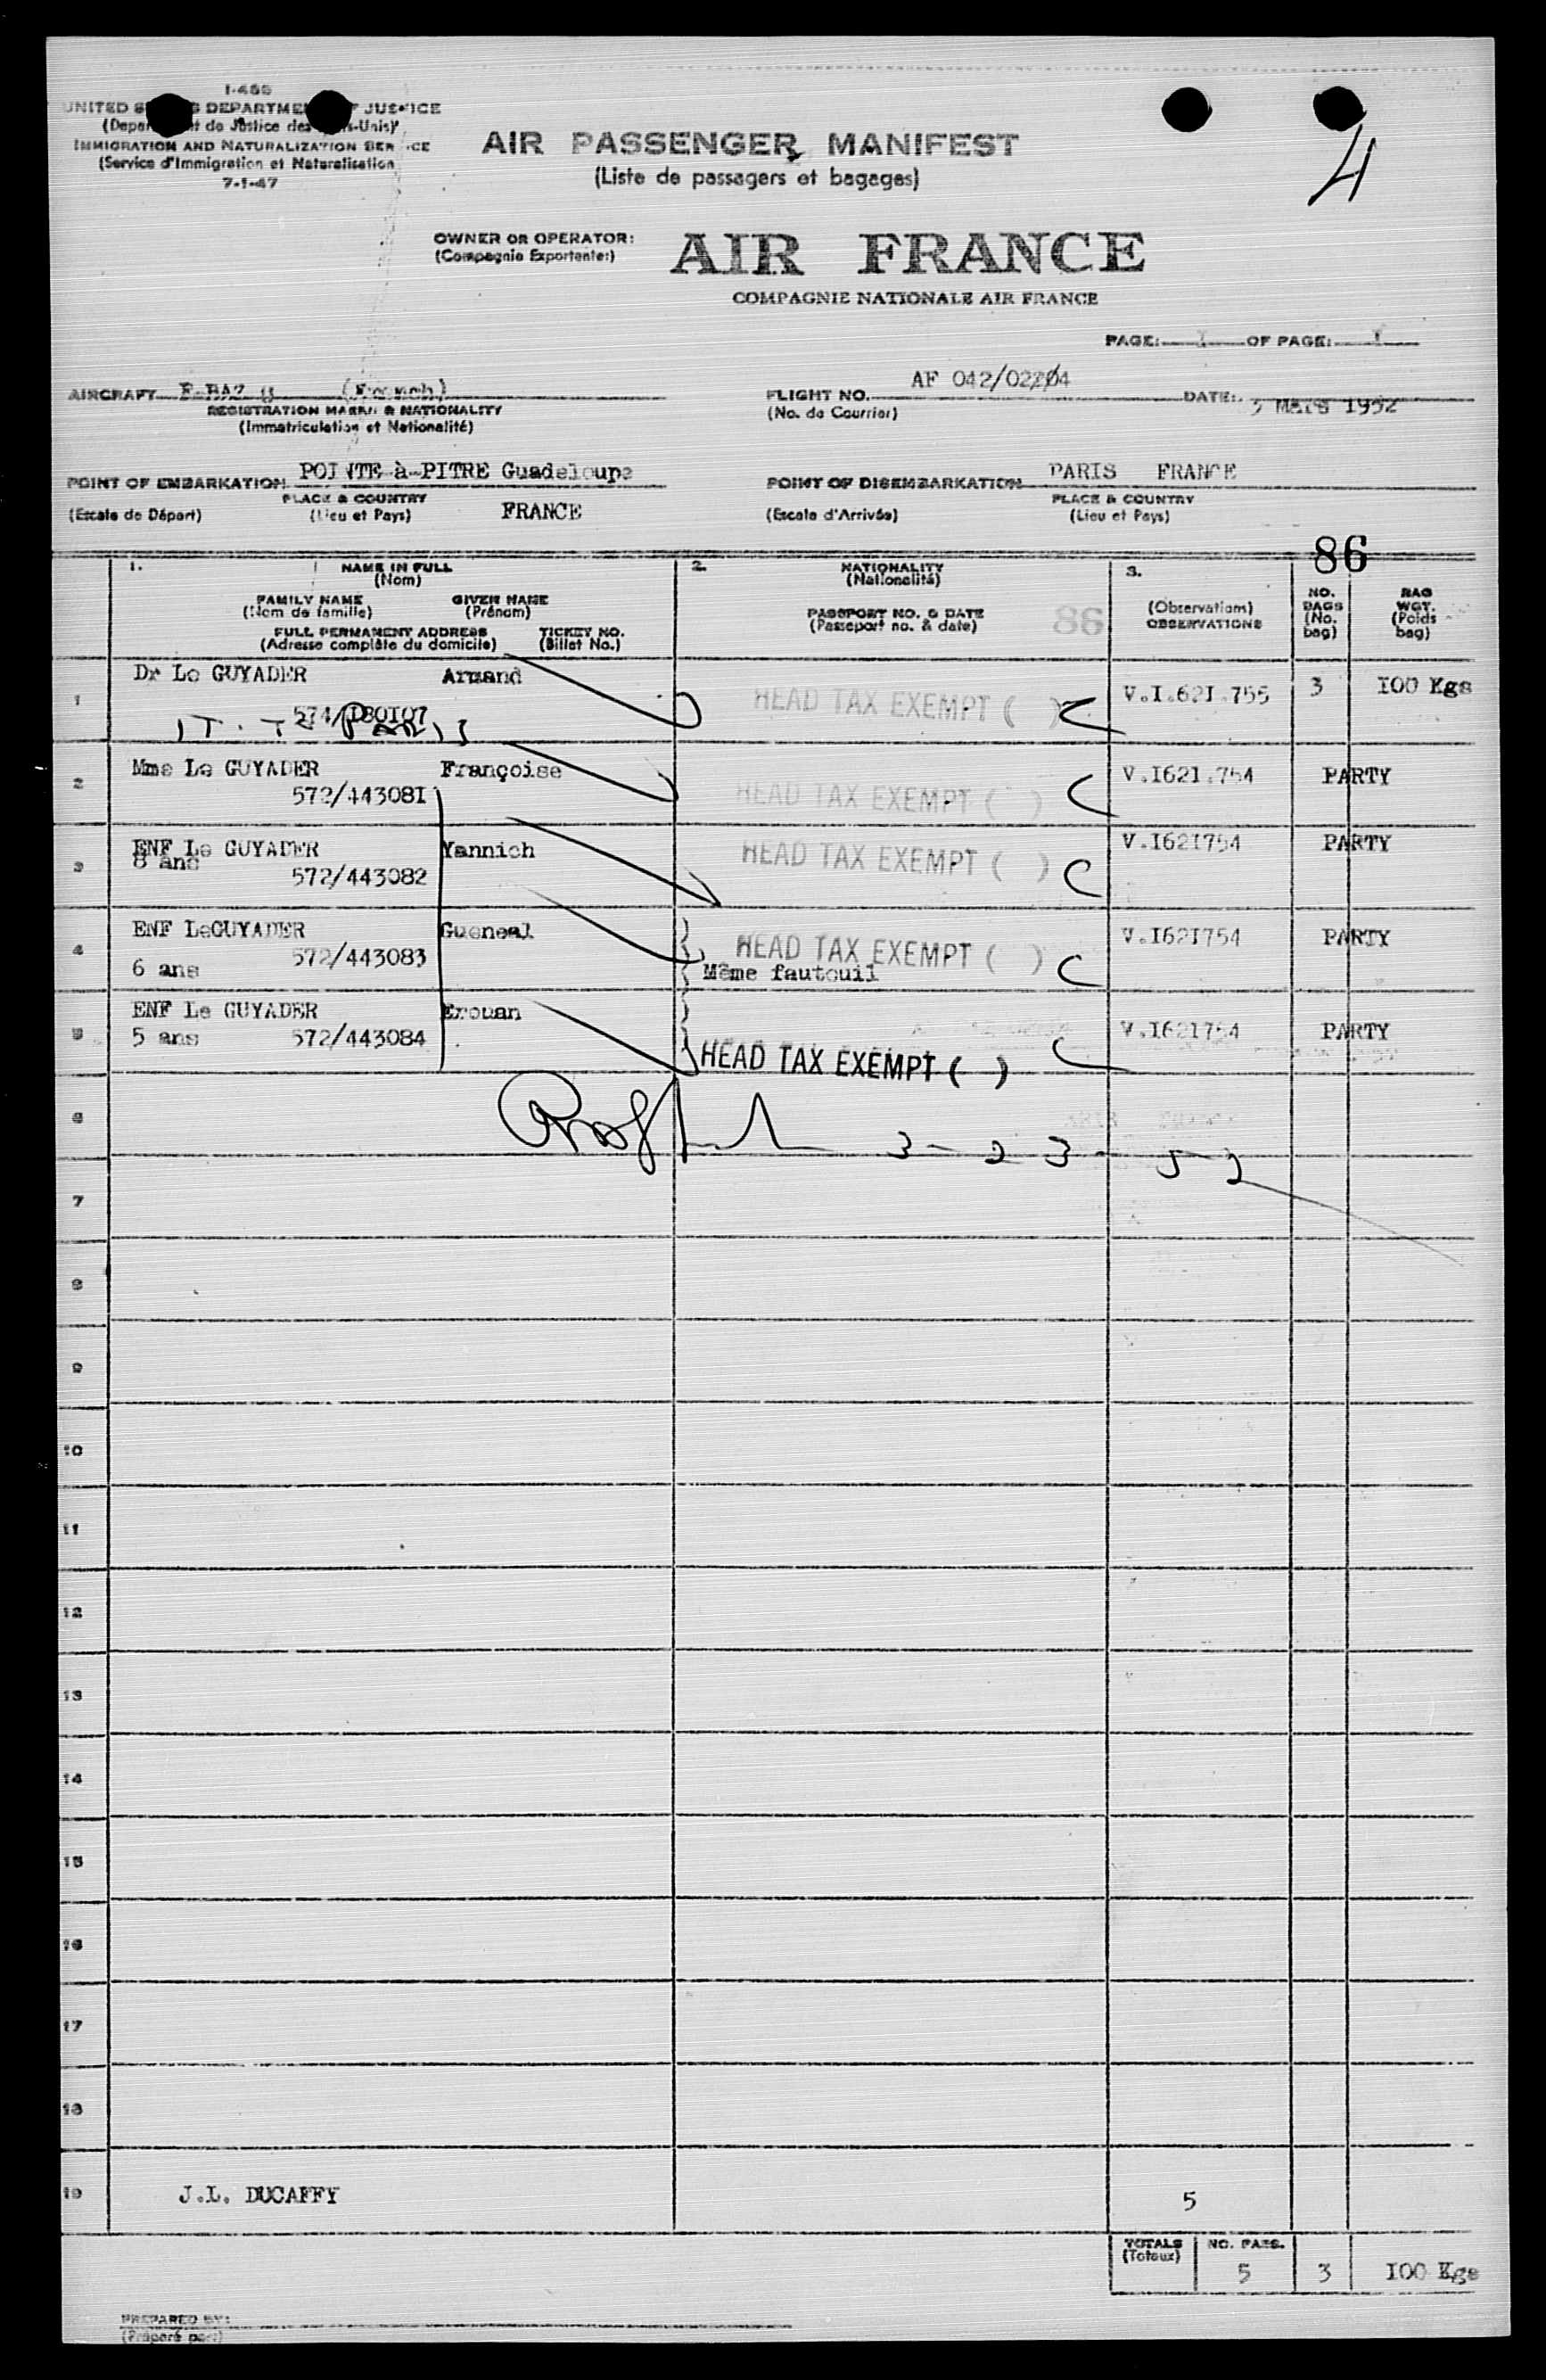 I-466
UNITED S DEPARTME F JUSTICE
(Depar t de Justice des s-Unis)
IMMIGRATION AND NATURALIZATION SER ICE
(Service d'Immigration et Naturalisation
7-1-47
AIR PASSENGER MANIFEST
(Liste de passagers et bagages)
4
OWNER OR OPERATOR:
(Compagnie Exportante:)
AIR FRANCE
COMPAGNIE NATIONALE AIR FRANCE
PAGE: I OF PAGE: I
AIRCRAFT F-BAZ (French)
REGISTRATION MARKS & NATIONALITY
(Immatriculation et Nationalité)
FLIGHT NO. AF 042/02
(No. de Courrier)
DATE: Mars 1952
POINT OF EMBARKATION POINTE à-PITRE Guadeloupe
PLACE & COUNTRY
(Escale de Départ) (Lieu et Pays) FRANCE
POINT OF DISEMBARKATION PARIS FRANCE
PLACE & COUNTRY
(Escale d'Arrivée) (Lieu et Pays)
86
1. NAME IN FULL
(Nom)
FAMILY NAME GIVEN NAME
(Nom de famille) (Prénom)
FULL PERMANENT ADDRESS TICKET NO.
(Adresse complète du domicile) (Billet No.)
2. NATIONALITY
(Nationalité)
PASSPORT NO. & DATE
(Passeport no. & date)
86
3.
(Observations)
OBSERVATIONS
NO. BAGS (No. bag)
BAG WGT. (Poids bag)
1 Dr Le GUYADER Armand HEAD TAX EXEMPT ( ) V.I.62I.755 3 I00 Kgs
574/I80I07
Paris
2 Mme Le GUYADER Françoise HEAD TAX EXEMPT ( ) V.I62I.754 PARTY
572/44308I
3 ENF Le GUYADER Yannich HEAD TAX EXEMPT ( ) V.I62I754 PARTY
8 ans 572/443082
4 ENF LeGUYADER Gueneal HEAD TAX EXEMPT ( ) V.I62I754 PARTY
572/443083
6 ans Même fauteuil
5 ENF Le GUYADER Erouan V.I621754 PARTY
5 ans 572/443084
HEAD TAX EXEMPT ( )
6
3-23-52
7
8
9
10
11
12
13
14
15
16
17
18
19 J.L. DUCAFFY 5
TOTALS NO. PASS.
(Totaux) 5 3 I00 Kgs
PREPARED BY:
(Préparé par:)